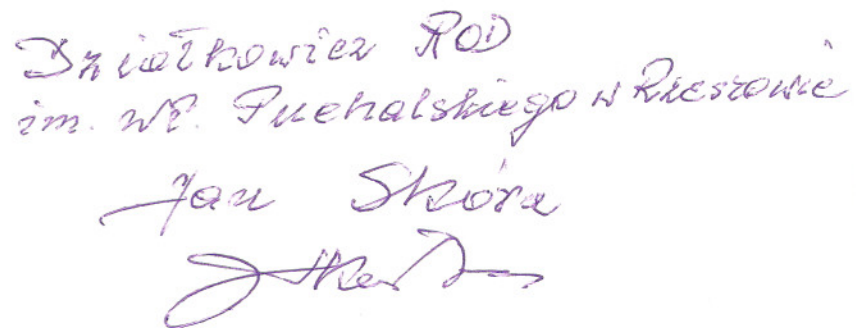 Działkowicz ROD
im. Wł. Puchalskiego w Rzeszowie
Jan Skóra